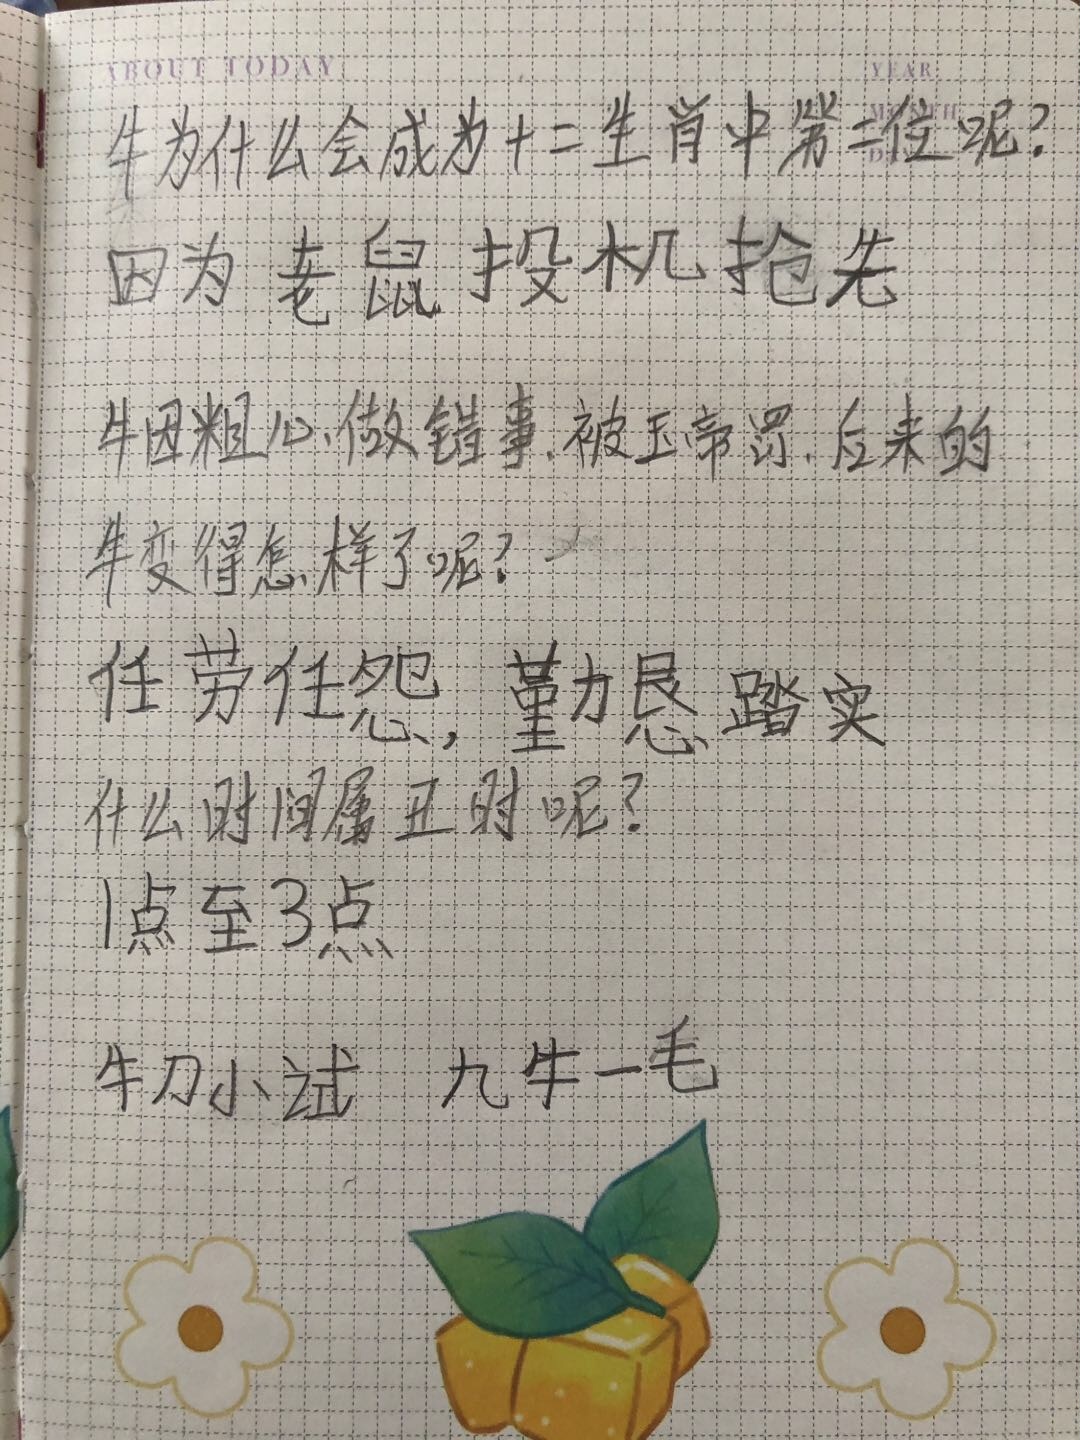 ABOUT TODAY
YEAR
MONTH
牛为什么会成为十二生肖中第二位呢?
因为老鼠投机抢先
牛因粗心做错事,被玉帝罚,后来的
牛变得怎样了呢?
任劳任怨,勤恳踏实
什么时间属丑时呢?
1点至3点
牛刀小试 九牛一毛